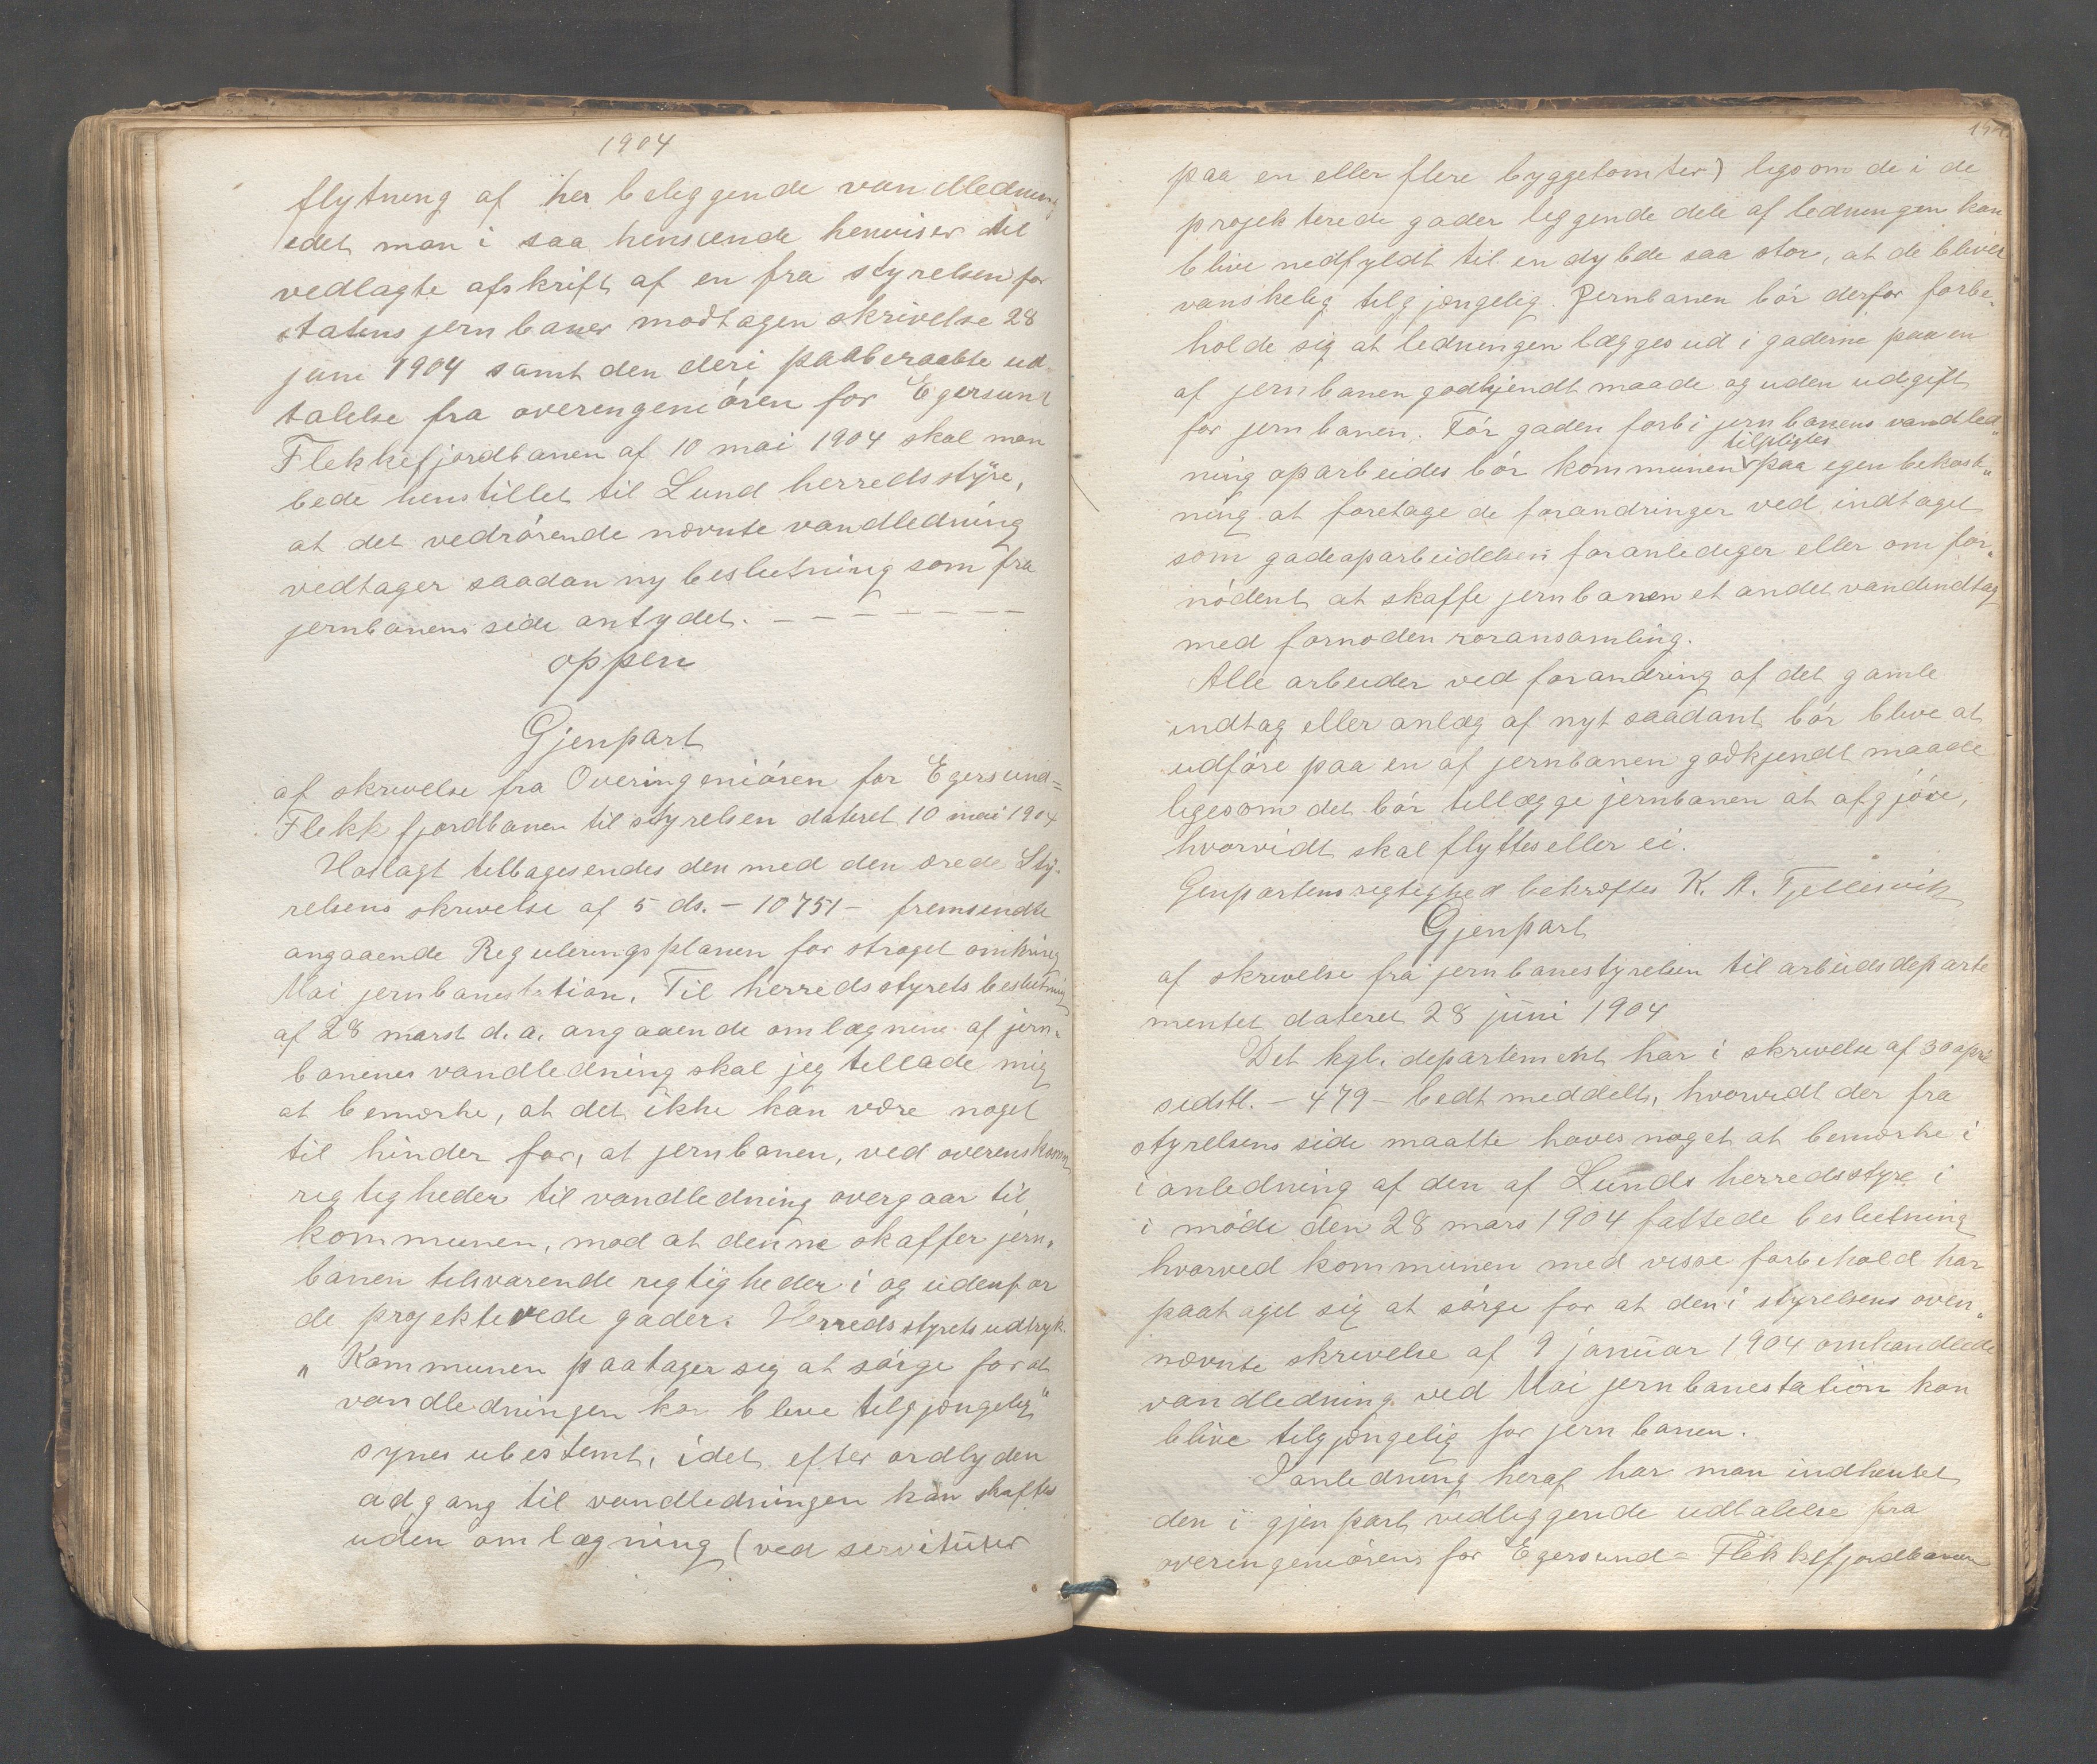 1904
flytning af her beliggende vandledning
idet man i saa henseende henviser til
vedlagte afskrift af en fra styrelsen for
statens jernbaner modtagen skrivelse 28
juni 1904 samt den deri paaberaabte ud-
talelse fra overingeniøren for Egersund
Flekkefjordbanen af 10 mai 1904 skal man
bede henstillet til Lund herredsstyre,
at det vedrørende nævnte vandledning
vedtager saadan ny beslutning som fra
jernbanens side antydet. — — — — — — —
oppen
Gjenpart
af skrivelse fra Overingeniøren for Egersund=
Flekkfjordbanen til styrelsen dateret 10 mai 1904
Hoslagt tilbagesendes den med den ærede Sty-
relsens skrivelse af 5 ds. – 10751 – fremsendte
angaaende Reguleringsplanen for strøget omkring
Moi jernbanestation. Til herredsstyrets beslutning
af 28 marst d.a. angaaende omlægning af jern-
banenes vandledning skal jeg tillade mig
at bemærke, at det ikke kan være noget
til hinder for, at jernbanen, ved overenskomst
rigtigheder til vandledning overgaar til
kommunen, mod at denne skaffer jern-
banen tilsvarende rigtigheder i og udenfor
de projekterede gader. Herredsstyrets udtryk.
„Kommunen paatager sig at sørge for at
vandledningen kan blive tilgjængelig“
synes ubestemt, idet efter ordlyden
adgang til vandledningen kan skaffes
uden omlægning (ved servituter
paa en eller flere byggetomter) ligsom de i de
projekterede gader liggende dele af ledningen kan
blive nedfyldt til en dybde saa stor, at de bliver
vanskelig tilgjængelig. Jernbanen bør derfor forbe-
holde sig at ledningen lægges ud i gaderne paa en
af jernbanen godkjendt maade og uden udgift
for jernbanen. Før gaden forbi jernbanens vandled-
tilpligtes
ning oparbeides bør kommunen paa egen bekost-
ning at foretage de forandringer ved indtaget
som gadeoparbeidelsen foranlediger eller om for-
nødent at skaffe jernbanen et andet vandindtag
med fornøden røransamling.
Alle arbeider ved forandring af det gamle
indtag eller anlæg af nyt saadant bør blive at
udføre paa en af jernbanen godkjendt maade
ligesom det bør tillægge jernbanen at afgjøre,
hvorvidt skal flyttes eller ei.
Genpartens rigtighed bekræftes K. A. Tjellesvik
Gjenpart
af skrivelse fra jernbanestyrelsen til arbeidsdeparte
mentet dateret 28 juni 1904
Det kgl. departement har i skrivelse af 30 april
sidstl. – 479 – bedt meddelt, hvorvidt der fra
styrelsens side maatte haves noget at bemærke i
i anledning af den af Lunds herredsstyre i
i møde den 28 mars 1904 fattede beslutning
hvorved kommunen med visse forbehold har
paataget sig at sørge for at den i styrelsens oven-
nævnte skrivelse af 9 januar 1904 omhandlede
vandledning ved Moi jernbanestation kan
blive tilgjængelig for jernbanen.
I anledning heraf har man indhentet
den i gjenpart vedliggende udtalelse fra
overingeniørens for Egersund= Flekkefjordbanen